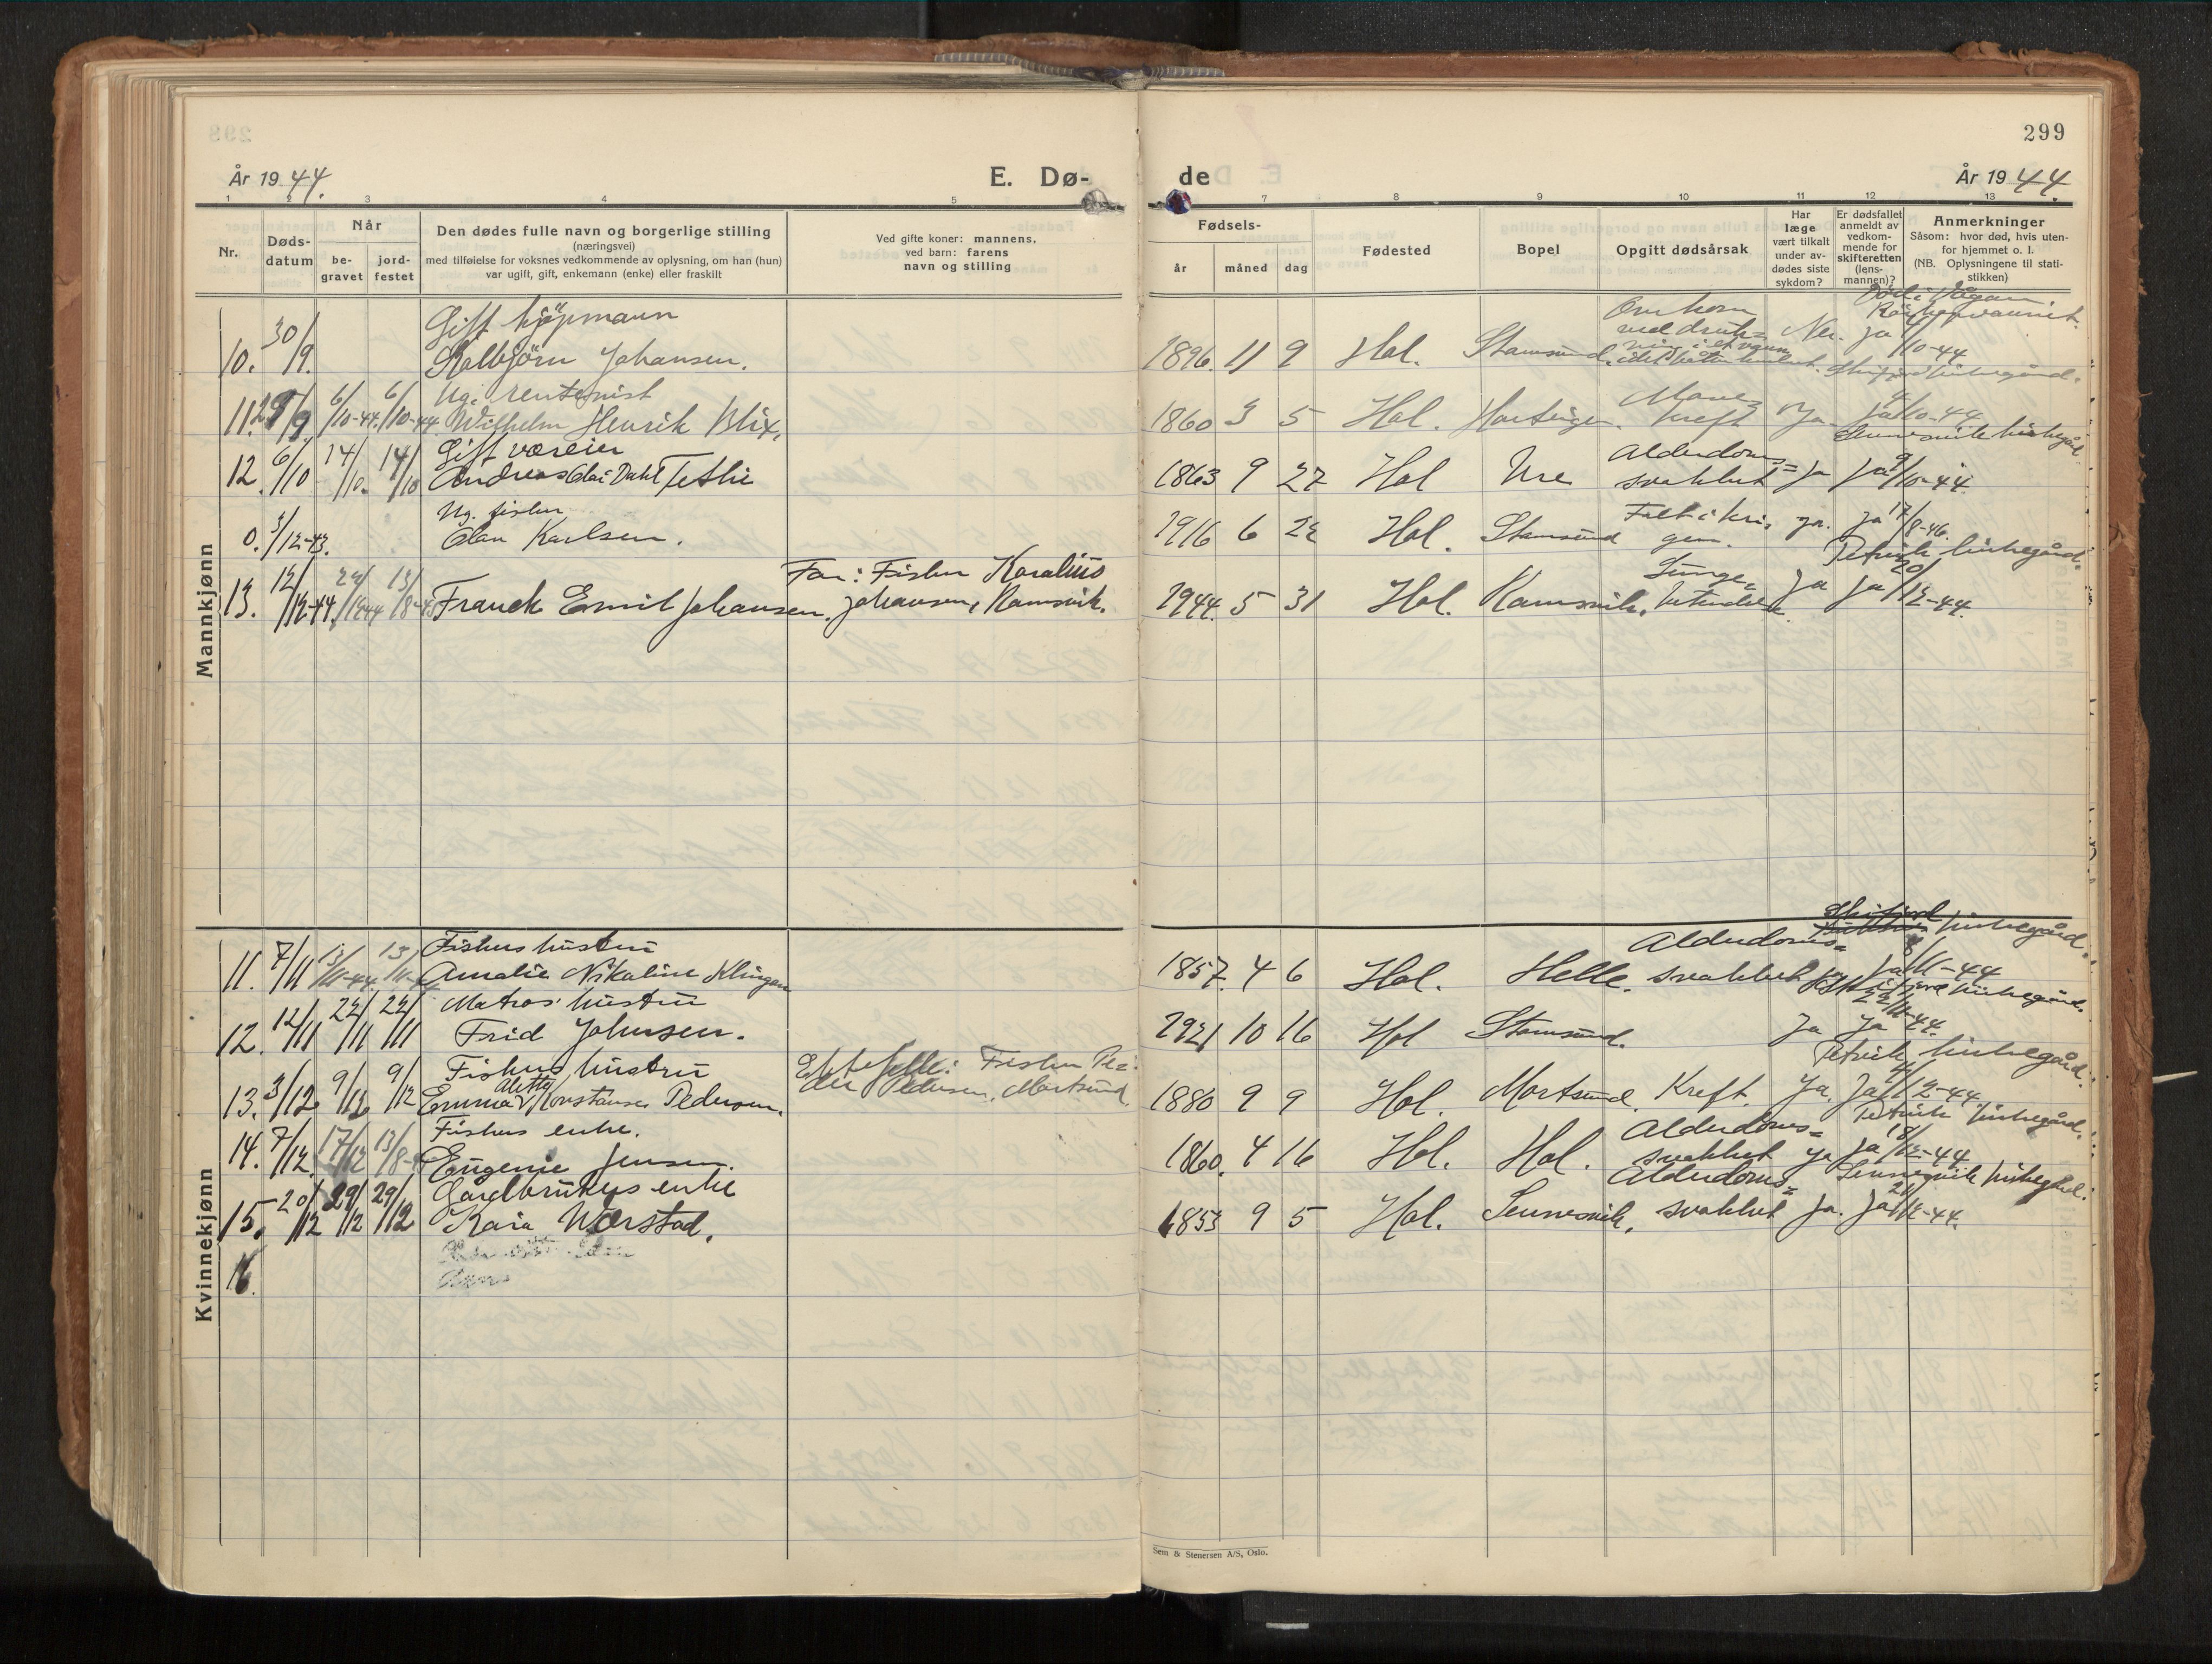 299
År 1944.
E. Dø-
de
År 1944.
1 2 3 4 5
7 8 9 10 11 12 13
Nr.
Døds-
datum
Når
be-
gravet
jord-
festet
Den dødes fulle navn og borgerlige stilling
(næringsvei)
med tilføielse for voksnes vedkommende av oplysning, om han (hun)
var ugift, gift, enkemann (enke) eller fraskilt
Ved gifte koner: mannens,
ved barn: farens
navn og stilling
Fødsels-
år
måned
dag
Fødested
Bopel
Opgitt dødsårsak
Har
læge
vært tilkalt
under av-
dødes siste
sykdom?
Er dødsfallet
anmeldt av
vedkom-
mende for
skifteretten
(lens-
mannen)?
Anmerkninger
Såsom: hvor død, hvis uten-
for hjemmet o. l.
(NB. Oplysningene til stati-
stikken)
Mannkjønn
Gift kjøpmann
10. 30/9. Kolbjørn Johansen. 1896. 11 9 Hol. Stamsund. Omkom ved druk= Nei. ja /10-44
Ug. rentenist
11. 29/9. 6/10-44. 6/10-44 Wilhelm Henrik Blix. 1860 3 5 Hol. Mave= kreft Ja. ja /10-44
Gift væreier
12. 6/10 14/10. 14/10 Andreas Olai Dahl 1863 9 27 Hol Ure Alderdoms= svakhet ja ja 9/10-44
Ug. fisker
0. 3/12-43. Olav Karlsen. 1916 6 22 Hol. Stamsund Falt i kri= gen. ja. ja 17/8-46.
Petvik kirkegård.
Far: Fisker Koralius
13. 12/12-44. 13/8-45 Franck Emil Johansen. Johansen, Ramsvik. 1944. 5 31 Hol. Ramsvik. Lunge= betendelse. ja ja 20/12-44.
Kvinnekjønn
kirkegård.
Fiskers hustru
11. 7/11 13/11-44. 13/11-44 Amalie Nikoline Klingen 1857. 4 6 Hol. Helle. Alderdoms= svakhet ja /11-44
kirkegård.
Matros' hustru
12. 12/11 22/11 22/11 Frid Johnsen. 1921 10 16 Hol Stamsund. Ja ja 22/11-44.
Petvik kirkegård.
Fiskers hustru
13. 3/12 9/12 9/12 Emma Aletta Konstanse Pedersen. Ektefelle: Fisker Pe= der Pedersen, Mortsund. 1880 9 9 Hol. Mortsund. Kreft. Ja. Ja 4/12-44
Petvik kirkegård.
Fiskers enke.
14. 7/12. 17/12 13/8- Eugenie Jensen. 1860. 4 16 Hol. Hol. Alderdoms= svakhet ja ja 18/12-44
Sennesvik kirkegård.
Gårdbrukers enke
15. 20/12 29/12 29/12 Kaia Worstad. 1853 9 5 Hol. Sennesvik. Alderdoms= svakhet ja. ja 21/12-44.
16.
Sem & Stenersen A/S, Oslo.